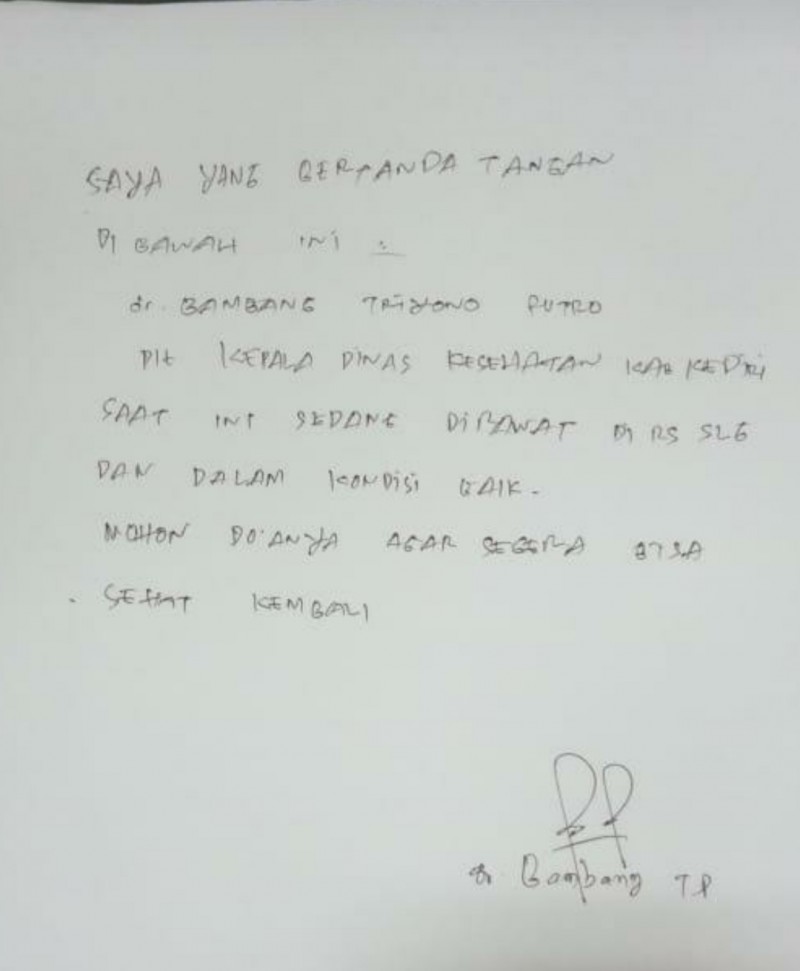 SAYA YANG BERTANDA TANGAN
DI BAWAH INI :
dr. BAMBANG TRIYONO PUTRO
Plt KEPALA DINAS KESEHATAN KAB KEDIRI
SAAT INI SEDANG DIRAWAT DI RS SLG
DAN DALAM KONDISI BAIK.
MOHON DO'ANYA AGAR SEGERA BISA
SEHAT KEMBALI
dr Bambang TP